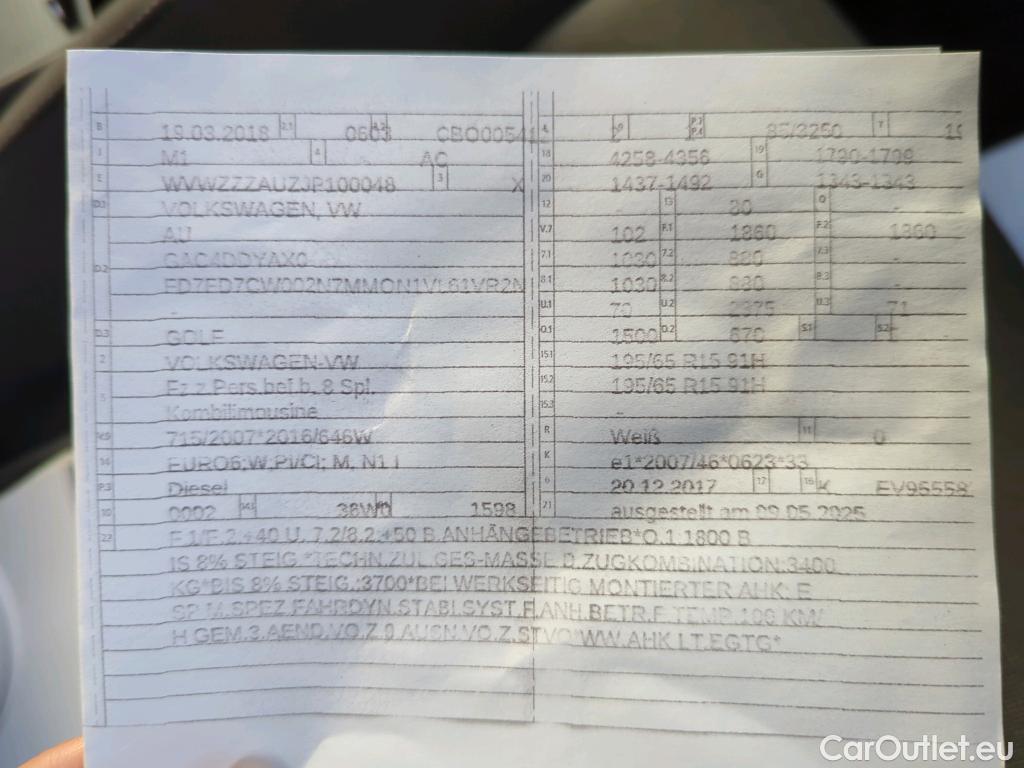 B 19.03.2018 2.1 0603 2.2 CBO00541 L 9 P.3 P.4 85/3250 T
J M1 4 AC 18 4258-4356 19 1790-1799
E WVWZZZAUZJP100048 3 X 20 1437-1492 G 1343-1343
D.1 VOLKSWAGEN, VW 12 - 13 80 Q -
AU V.7 102 F.1 1860 F.2 1860
D.2 GAC4DDYAX0 7.1 1030 7.2 880 7.3 -
FD7FD7CW002N7MMON1VL61VR2N 8.1 1030 8.2 880 8.3 -
- U.1 70 U.2 2375 U.3 71
D.3 GOLF O.1 1500 O.2 670 S.1 S.2 -
2 VOLKSWAGEN-VW 15.1 195/65 R15 91H
5 Fz.z.Pers.bef.b. 8 Spl. 15.2 195/65 R15 91H
Kombilimousine 15.3 -
V.9 715/2007*2016/646W R Weiß 11 0
14 EURO6;W,PI/CI; M, N1 I K e1*2007/46*0623*33
P.3 Diesel 6 20.12.2017 17 16 K EV95558
10 0002 14.1 36W0 P.1 1598 21 ausgestellt am 09.05.2025
22 F.1/F.2:+40 U. 7.2/8.2:+50 B.ANHÄNGEBETRIEB*O.1:1800 B
IS 8% STEIG.*TECHN.ZUL.GES-MASSE D.ZUGKOMBINATION:3400
KG*BIS 8% STEIG.:3700*BEI WERKSEITIG MONTIERTER AHK: E
SP M.SPEZ.FAHRDYN.STABI.SYST.F.ANH.BETR.F.TEMP.100 KM/
H GEM.3.AEND.VO.Z.9.AUSN.VO.Z.STVO*WW.AHK LT.EGTG*
CarOutlet.eu